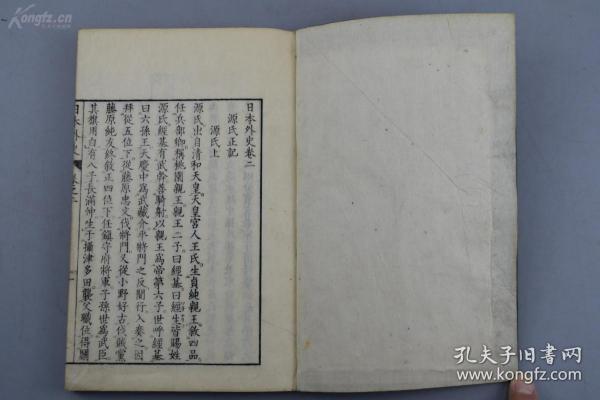 Kongfz.cn
日本外史卷二
源氏正記
源氏上
源氏出自清和天皇天皇宮人王氏生貞純親王敘四品
任兵部卿稱桃園親王親王二子曰經基曰經生皆賜姓
源氏經基有武幹善騎射以親王爲帝第六子世呼經基
曰六孫王天慶中爲武藏介平將門之反聞行入奏之因
拜從五位下從藤原忠文伐將門又從小野好古伐賊黨
藤原純友終敘正四位下任鎮守府將軍子孫世爲武臣
其旗用白有八子長滿仲生于攝津多田襲父職位得關
日本外史
卷之二
孔夫子旧书网
www.kongfz.com